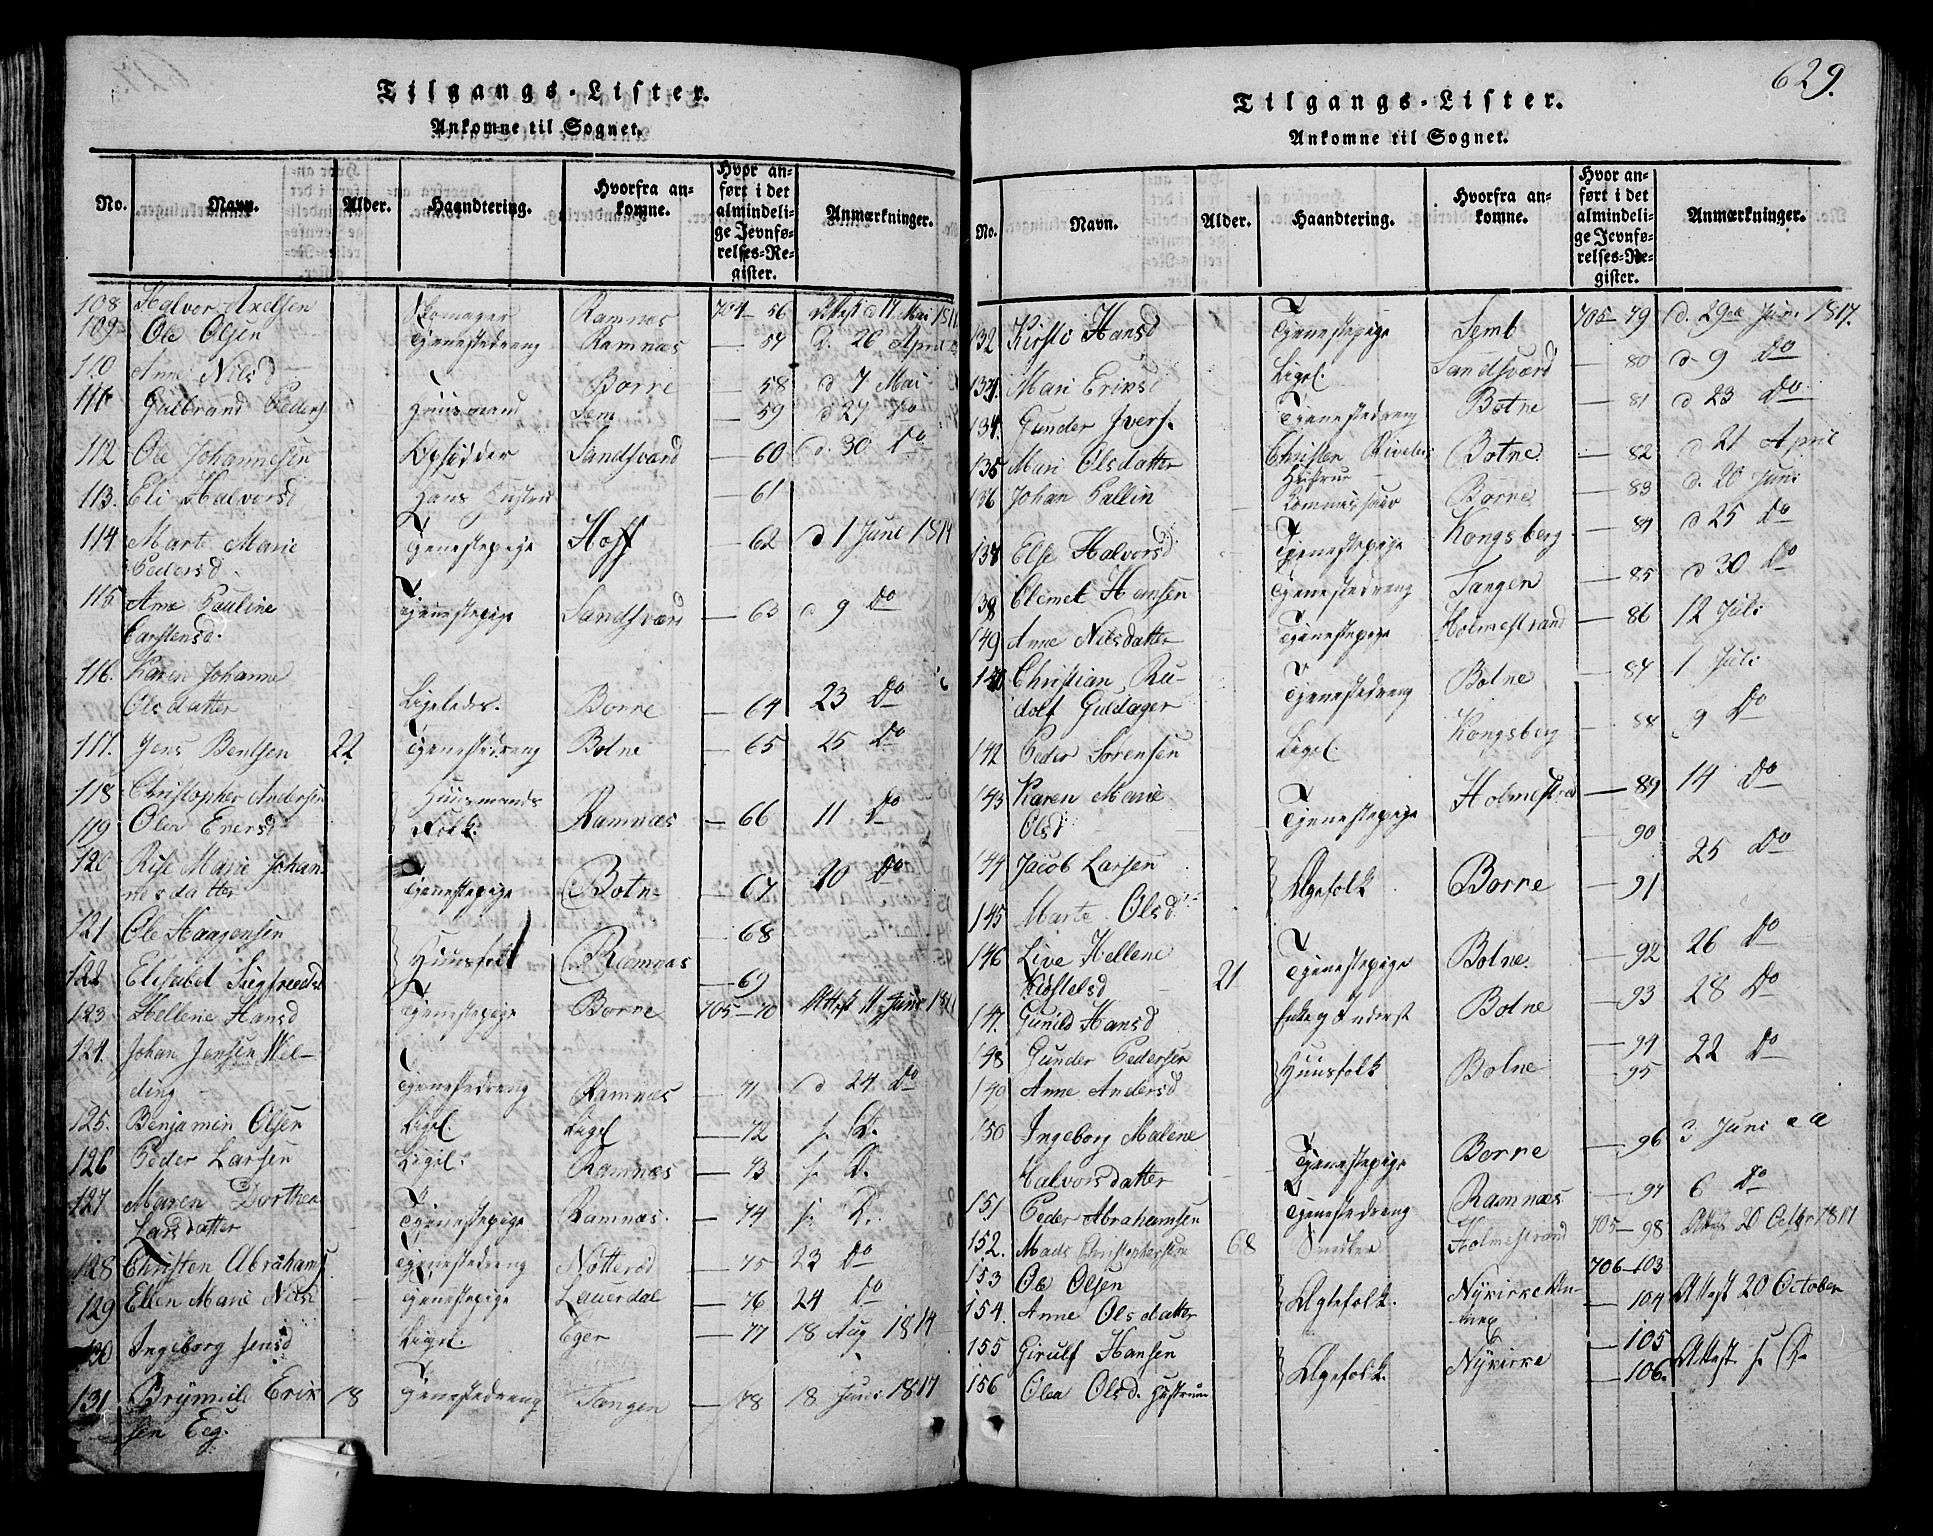 Tilgangs-Lister.
Ankomne til Sognet.
No. Navn. Alder. Haandtering. Hvorfra ankomne. Hvor anført i det almindelige Jevnførelses-Register. Anmærkninger.
108 Halvor Axelsen Ramnæs 704-56
109 Ole Olsen Tjenestedreng Ramnæs — 57 d. 26 April
110 Anne Nilsd — Borre — 58 d 7 Mai
111 Gulbrand Peders Huusmand Sem — 59 d 27 Do
112 Ole Johannesen Opsidder Sandsværd — 60 d. 30 Do
113. Eli Halvorsd Hans Hustru — 61
114 Marte Marie Pedersd. Tjenestepige Hoff — 62 d 1 Juni 1817
115 Anne Pauline Carstensd. Tjenestepige Sandsværd — 63 d 9 Do
116. Karen Johanne Olsdatter Ligeledes. Borre — 64 23 Do
117. Jens Bentsen 22 Tjenestedreng Botne — 65 25 Do
118 Christopher Andersen Huusmands
119 Olea Enersd Folk. Ramnæs — 66 11 Do
120 Rise Marie Johannesdatter Tjenestepige Botne — 67 20 Do
121 Ole Haagensen — 68
122 Elisabet Siegfreeds Huusfolk Ramnæs — 69
123 Hellene Hansd Tjenestepige Borre 705-70 Attest 11 Juni
124. Johan Jensen Welding Tjenestedreng Ramnæs — 71 d 24 Do
125. Benjamin Olsen Ligel. Ligel — 72 s. D.
126 Peder Larsen Ligel. Ramnæs — 73 s. D.
127 Maren Dorthea Larsdatter Tjenestepige Ramnæs. — 74 s. D.
128 Christen Abrahams Tjenestedreng Nøtterød — 75 23 Do
129 Ellen Marie Nilsd Tjenestepige Lauerdal — 76 24 Do
130 Ingeborg Jensd Ligel. Eger — 77 18 Aug 1817
131 Brymil Eriksen Eeg. 18 Tjenestedreng Tangen — 78 8 Juni 1817
629.
Tilgangs-Lister.
Ankomne til Sognet.
No. Navn. Alder. Haandtering. Hvorfra ankomne. Hvor anført i det almindelige Jevnførelses-Register. Anmærkninger.
132 Kirsti Hansd Tjenestepige Semb 705-79 d. 29de Juni 1817.
133 Mari Eriksd Ligel. Sandsværd — 80 d 9 Do
134. Gunder Ivers. Tjenestedreng Botne — 81 d 23 Do
135 Mari Olsdatter Christen Hustrue Botne — 82 d 21 April
136 Johan Pallin Borre — 83 d. 20 Juni
137 Else Halvorsd Tjenestepige Kongsberg — 84 d 25 Do
139 Clemet Hansen Tjenestedreng Tangen — 85 d 30 Do
149 Anne Nilsdatter Tjenestepige Holmestrand — 86 12 Juli
Christian Rudolf Guldager Tjenestedreng Botne — 87 1 Juli
142 Peder Sørensen Ligel. Kongsberg — 88 9 Do
143 Karen Marie Olsd: Tjenestepige Holmestrand — 89 14 Do
144 Jacob Larsen — 90 25 Do
145 Marte Olsd: Ægtefolk Borre — 91
146 Live Hellene Kistelsd 21 Tjenestepige Botne. — 92 26 Do
147. Gunild Hansd Enke og Inderst Botne — 93 28 Do
148 Gunder Pedersen — 94 22 Do
149 Anne Andersd Huusfolk Botne — 95
150 Ingeborg Malene Halvorsdatter Tjenestepige Borre — 96 3 Juni
151 Peder Abrahamsen Tjenestedreng Ramnæs — 97 6 Do
152. Mads Christophersen 68 Snedker Holmestrand 705-98 20 Octbr 1817
153 Ole Olsen 706-103
154. Anne Olsdatter Ægtefolk. Nykirke Annex — 104 Attest 20 October
155 Girulf Hansen — 105
156 Olea Olsd. Hustrue Ægtefolk. Nykirke — 106. Attest s. D.